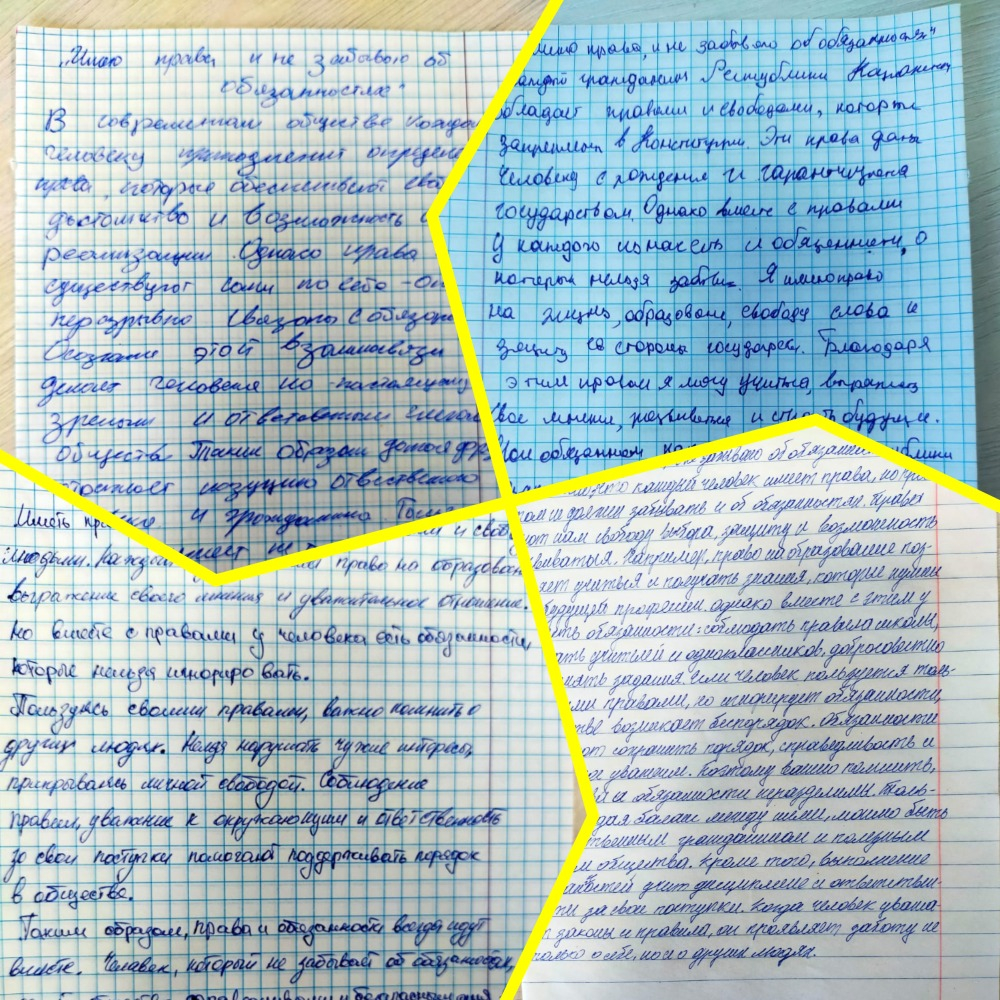 "Имею права и не забываю об
обязанностях"
В современном обществе каждом
человеку принадлежит определе
права, которые обеспечивают сво
достоинство и возможность
реализации. Однако права
существуют сами по себе - он
неразрывно связаны с обязан
Осознание этой взаимосвязи
делает человека по-настоящему
зрелым и ответственным членом
общества. Таким образом
отражает позицию отвественного
и гражданина
мею права, и не забываю об обязанностях"
аждый гражданин Республики Казахстан
обладает правами и свободами, которые
закреплены в Конституции. Эти права даны
человеку с рождения и гарантированы
государством. Однако вместе с правами
у каждого из нас есть и обязанности, о
которых нельзя забывать. Я имею право
на жизнь, образование, свободу слова и
защиту со стороны государства. Благодаря
этим правам я могу учиться, выражать
свое мнение, развиваться и строить будущее.
Мои обязанности
Иметь пра
людьми. Кажд право на образован
выражение своего мнения и уважительное отношение.
Но вместе с правами у человека есть обязанности,
которые нельзя игнорировать.
Пользуясь своими правами, важно помнить о
других людях. Нельзя нарушать чужие интересы,
прикрываясь личной свободой. Соблюдение
правил, уважение к окружающим и ответственность
за свои поступки помогают поддерживать порядок
в обществе.
Таким образом, права и обязанности всегда идут
вместе. Человек, который не забывает об обязанностях,
забываю об обязанно
каждый человек имеет права, но при
ом не должен забывать и об обязанностях. Права
ют нам свободу выбора, защиту и возможность
звиваться. Например, право на образование поз-
яет учиться и получать знания, которые нужны
будущей профессии. однако вместе с этим у
есть обязанности: соблюдать правила школы,
ать учителей и одноклассников, добросовестно
нять задания. Если человек пользуется толь-
ими правами, но игнорирует обязанности,
тве возникает беспорядок. Обязанности
ют сохранить порядок, справедливость и
ое уважение. Поэтому важно помнить,
ва и обязанности неразделимы. Толь-
дая баланс между ними, можно быть
тственным гражданином и полезным
м общества. Кроме того, выполнение
занностей учит дисциплине и ответствен-
ти за свои поступки. Когда человек уважа-
т законы и правила, он проявляет заботу не
только о себе, но и о других людях.